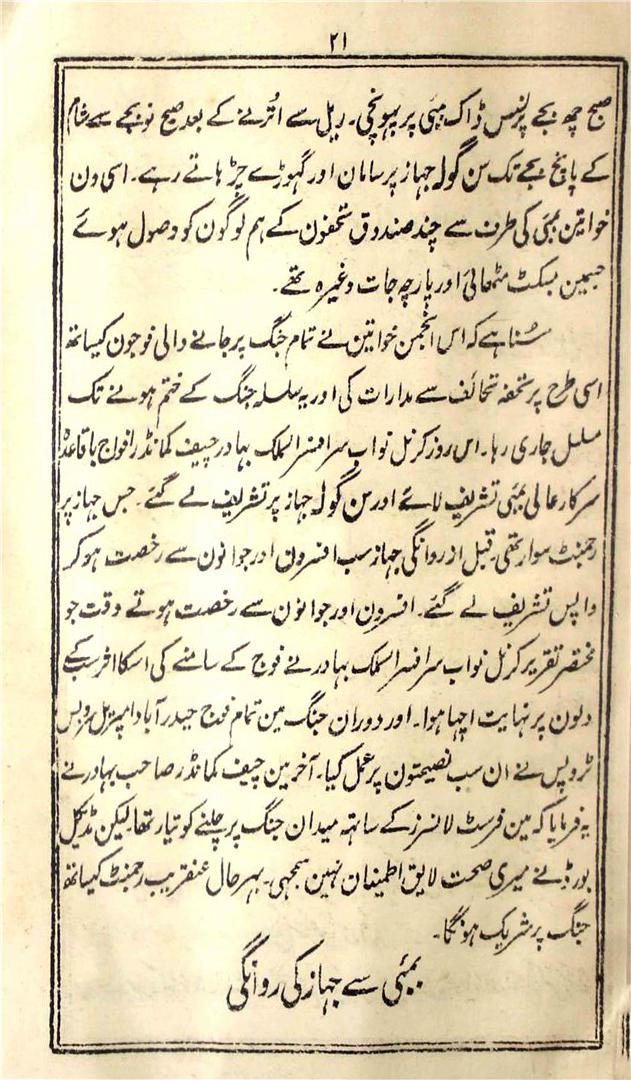 ۲۱
صبح چھ بجے پرنسس ڈاک بمبئی پر پہونچی۔ ریل سے اُترنے کے بعد صبح نو بجے سے شام
کے پانچ بجے تک سن گولہ جہاز پر سامان اور گہوڑے چڑہاتے رہے۔ اسی دن
خواتین بمبئی کی طرف سے چند صندوق تحفون کے ہم لوگون کو وصول ہوئے
جسمین بسکٹ مٹھائی اور پارچہ جات وغیرہ تھے۔
سُنا ہے کہ اس انجمن خواتین نے تمام جنگ پر جانے والی فوجون کیساتھ
اسی طرح پر تحفہ تحائف سے مدارات کی اور یہ سلسلہ جنگ کے ختم ہونے تک
مسلسل جاری رہا۔ اس روز کرنل نواب سر افسر الملک بہادر چیف کمانڈر افواج باقاعدہ
سرکار عالی بمبئی تشریف لائے اور سن گولہ جہاز پر تشریف لے گئے۔ جس جہاز پر
رجمنٹ سوار تھی۔ قبل از روانگی جہاز سب افسرون اور جوانون سے رخصت ہوکر
واپس تشریف لے گئے۔ افسرون اور جوانون سے رخصت ہوتے وقت جو
مختصر تقریر کرنل نواب سر افسر الملک بہادر نے فوج کے سامنے کی اسکا اثر سب کے
دلون پر نہایت اچہا ہوا۔ اور دوران جنگ مین تمام فوج حیدرآباد امپیریل سرویس
ٹروپس نے ان سب نصیحتون پر عمل کیا۔ آخر مین چیف کمانڈر صاحب بہادر نے
یہ فرمایا کہ مین فرسٹ لانسرز کے ساتہہ میدان جنگ پر چلنے کو تیار تھا۔ لیکن مڈیکل
بورڈ نے میری صحت لایق اطمینان نہین سمجہی۔ بہرحال عنقریب رجمنٹ کیساتھ
جنگ پر شریک ہونگا۔
بمبئی سے جہاز کی روانگی